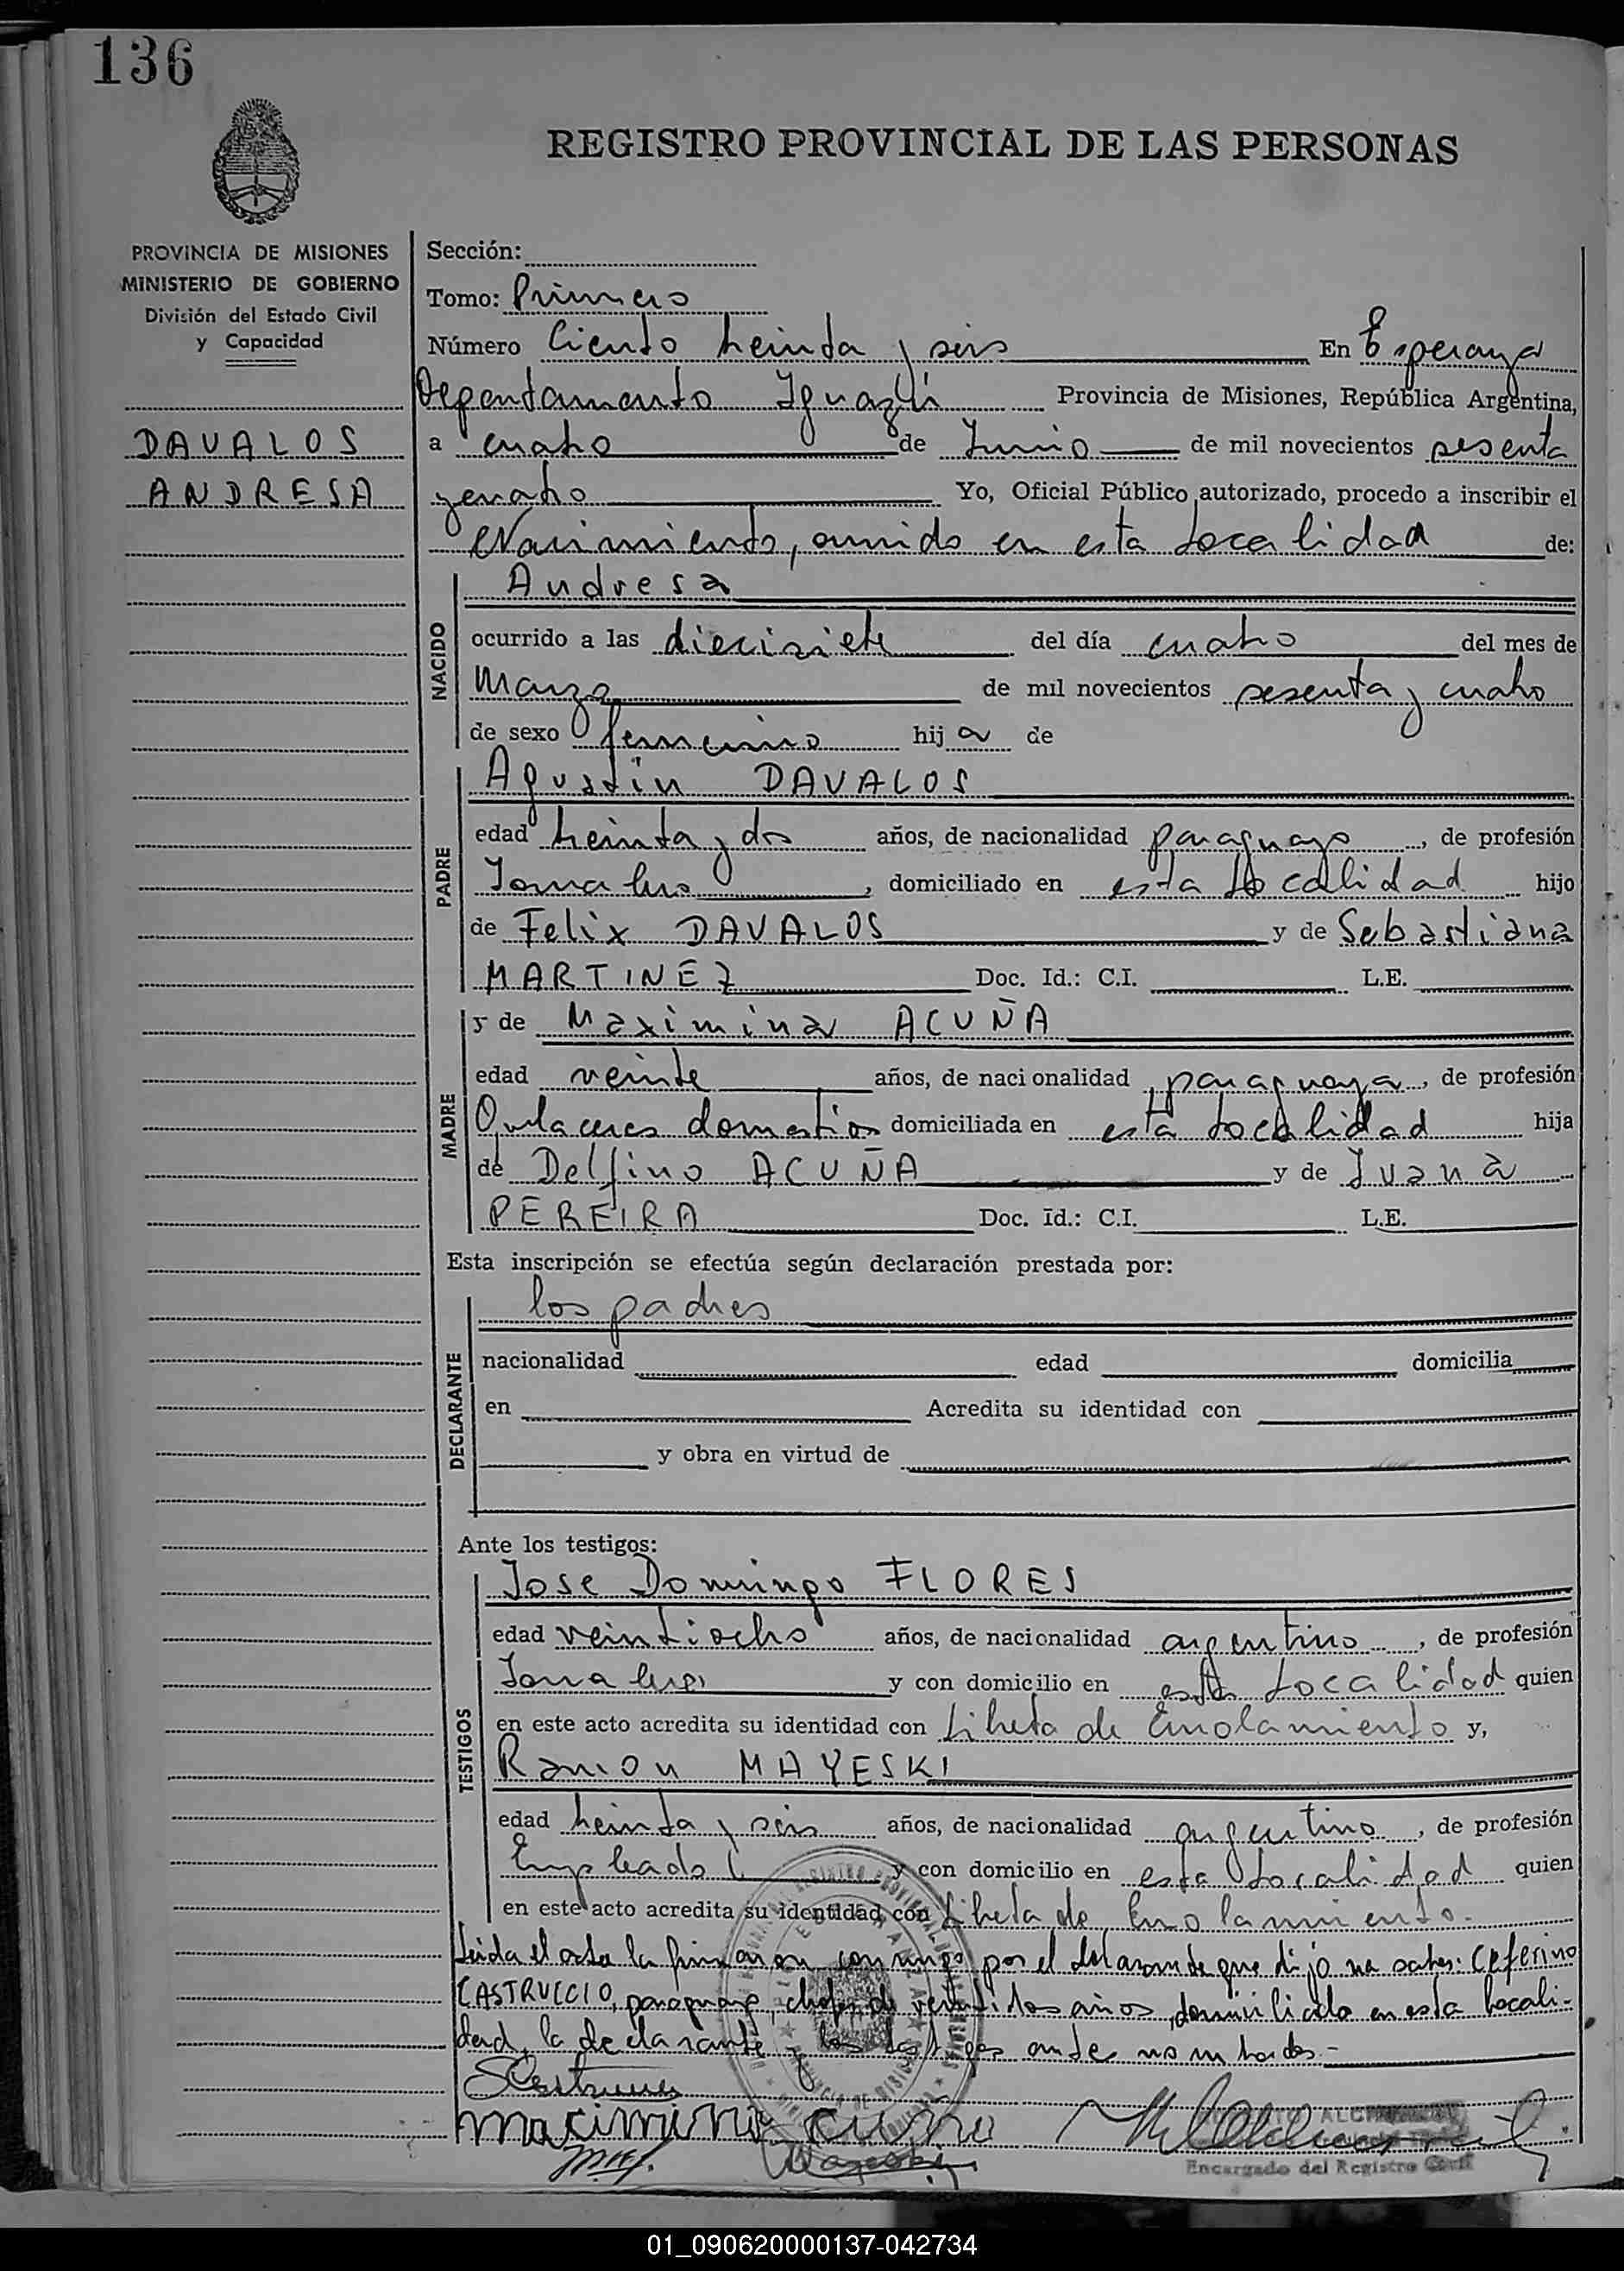 136
REGISTRO PROVINCIAL DE LAS PERSONAS
PROVINCIA DE MISIONES
MINISTERIO DE GOBIERNO
División del Estado Civil
y Capacidad
DAVALOS
ANDRESA
Sección:
Tomo: Primero
Número Ciento treinta y seis En Esperanza
Departamento Iguazú Provincia de Misiones, República Argentina,
a cuatro de Junio de mil novecientos sesenta
y cuatro Yo, Oficial Público autorizado, procedo a inscribir el
Nacimiento, ocurrido en esta Localidad de:
NACIDO
Andresa
ocurrido a las diecisiete del día cuatro del mes de
Marzo de mil novecientos sesenta y cuatro
de sexo femenino hija de
PADRE
Agustin DAVALOS
edad treinta y dos años, de nacionalidad paraguayo, de profesión
Jornalero, domiciliado en esta Localidad hijo
de Felix DAVALOS y de Sebastiana
MARTINEZ Doc. Id.: C.I. L.E.
MADRE
y de Maximina ACUÑA
edad veinte años, de nacionalidad paraguaya, de profesión
Quehaceres domesticos domiciliada en esta Localidad hija
de Delfino ACUÑA y de Juana
PEREIRA Doc. Id.: C.I. L.E.
Esta inscripción se efectúa según declaración prestada por:
DECLARANTE
los padres
nacionalidad edad domicilia
en Acredita su identidad con
y obra en virtud de
Ante los testigos:
TESTIGOS
Jose Domingo FLORES
edad veintiocho años, de nacionalidad argentino, de profesión
Jornalero y con domicilio en esta Localidad quien
en este acto acredita su identidad con Libreta de Enrolamiento y,
Ramon MAYESKI
edad treinta y seis años, de nacionalidad argentino, de profesión
Empleado y con domicilio en esta Localidad quien
en este acto acredita su identidad con Libreta de Enrolamiento.
Leida el acta la firmaron conmigo por el declarante que dijo no saber: Ceferino
CASTRUCCIO, paraguayo, chofer de veintidos años, domiciliado en esta Locali-
dad, la declarante y los testigos ante nombrados.-
Encargado del Registro Civil
01_090620000137-042734